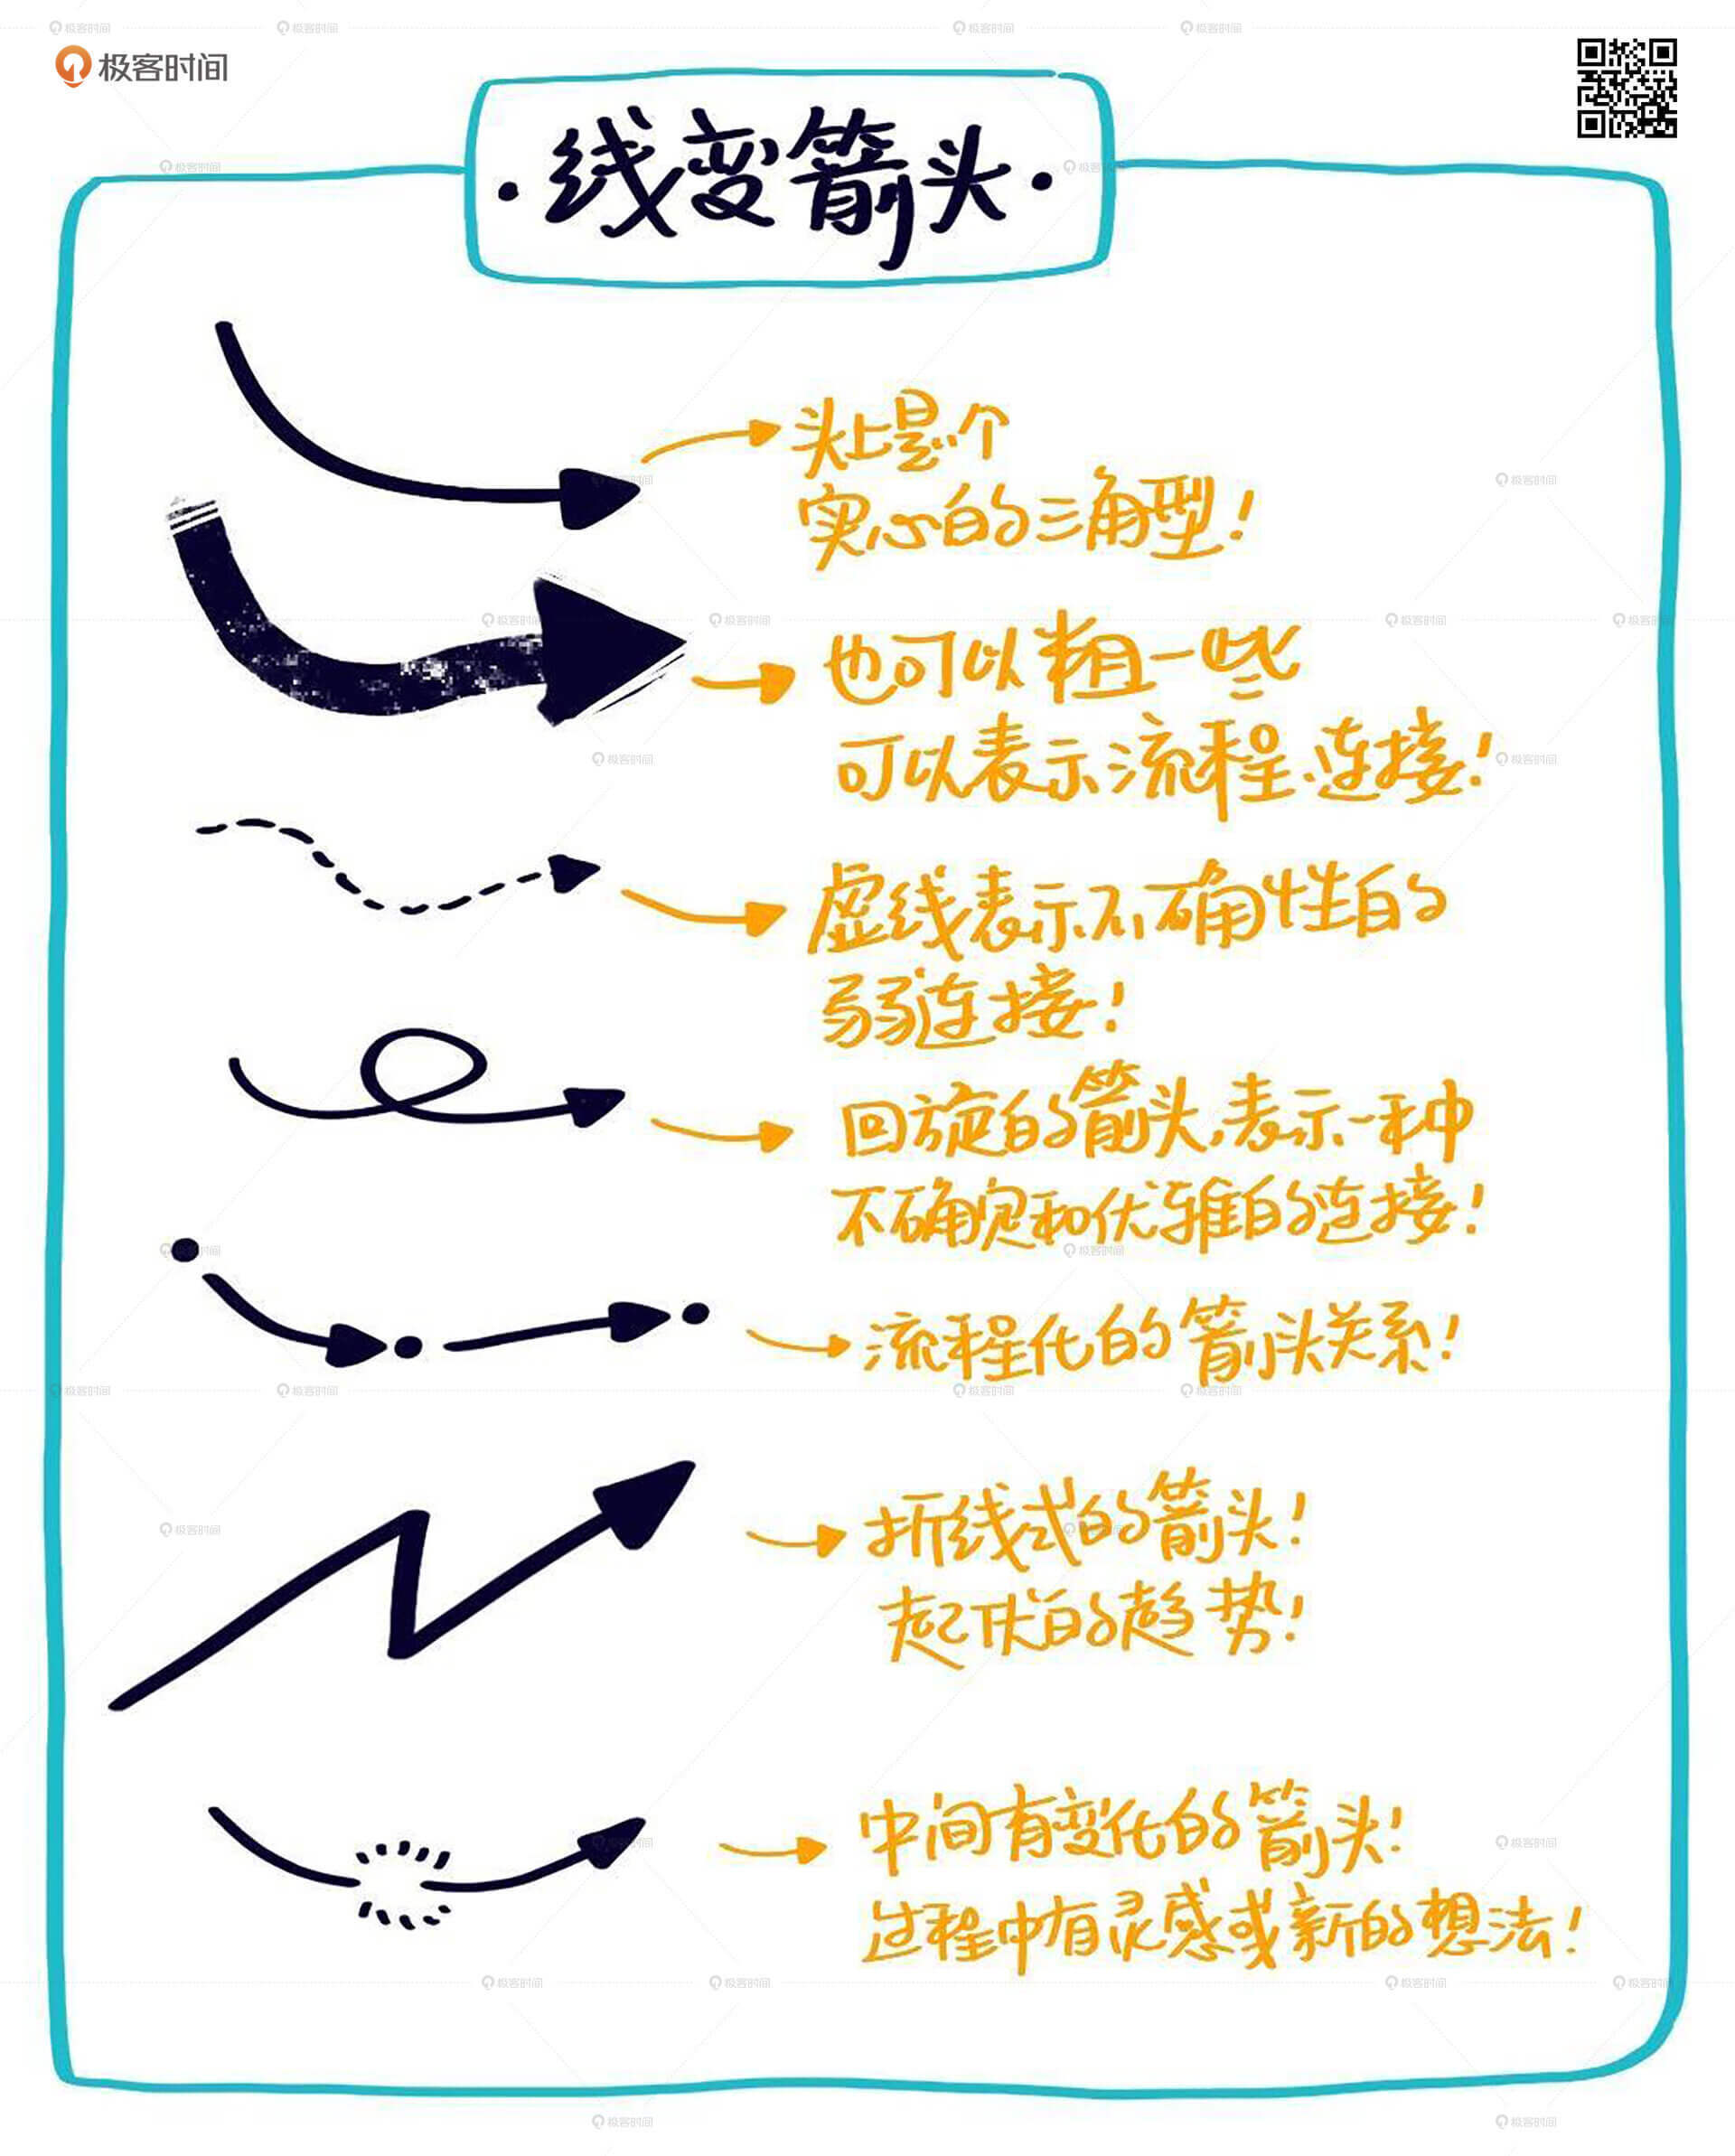 极客时间
·线变箭头·
头上是个
实心的三角型！
也可以粗一些
可以表示流程、连接！
虚线表示不确性的
弱连接！
回旋的箭头，表示一种
不确定和优雅的连接！
流程化的箭头关系！
折线式的箭头！
起伏的趋势！
中间有变化的箭头！
过程中有灵感或新的想法！